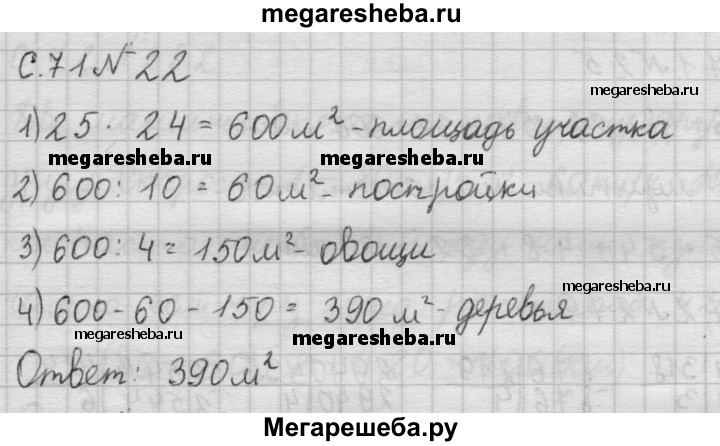 megaresheba.ru
С.71 № 22
megaresheba.ru
1) 25 · 24 = 600 м² - площадь участка
megaresheba.ru megaresheba.ru
2) 600 : 10 = 60 м² - постройки
3) 600 : 4 = 150 м² - овощи
megaresheba.ru
4) 600 - 60 - 150 = 390 м² - деревья
megaresheba.ru megaresheba.ru
Ответ: 390 м²
Мегарешеба.ру